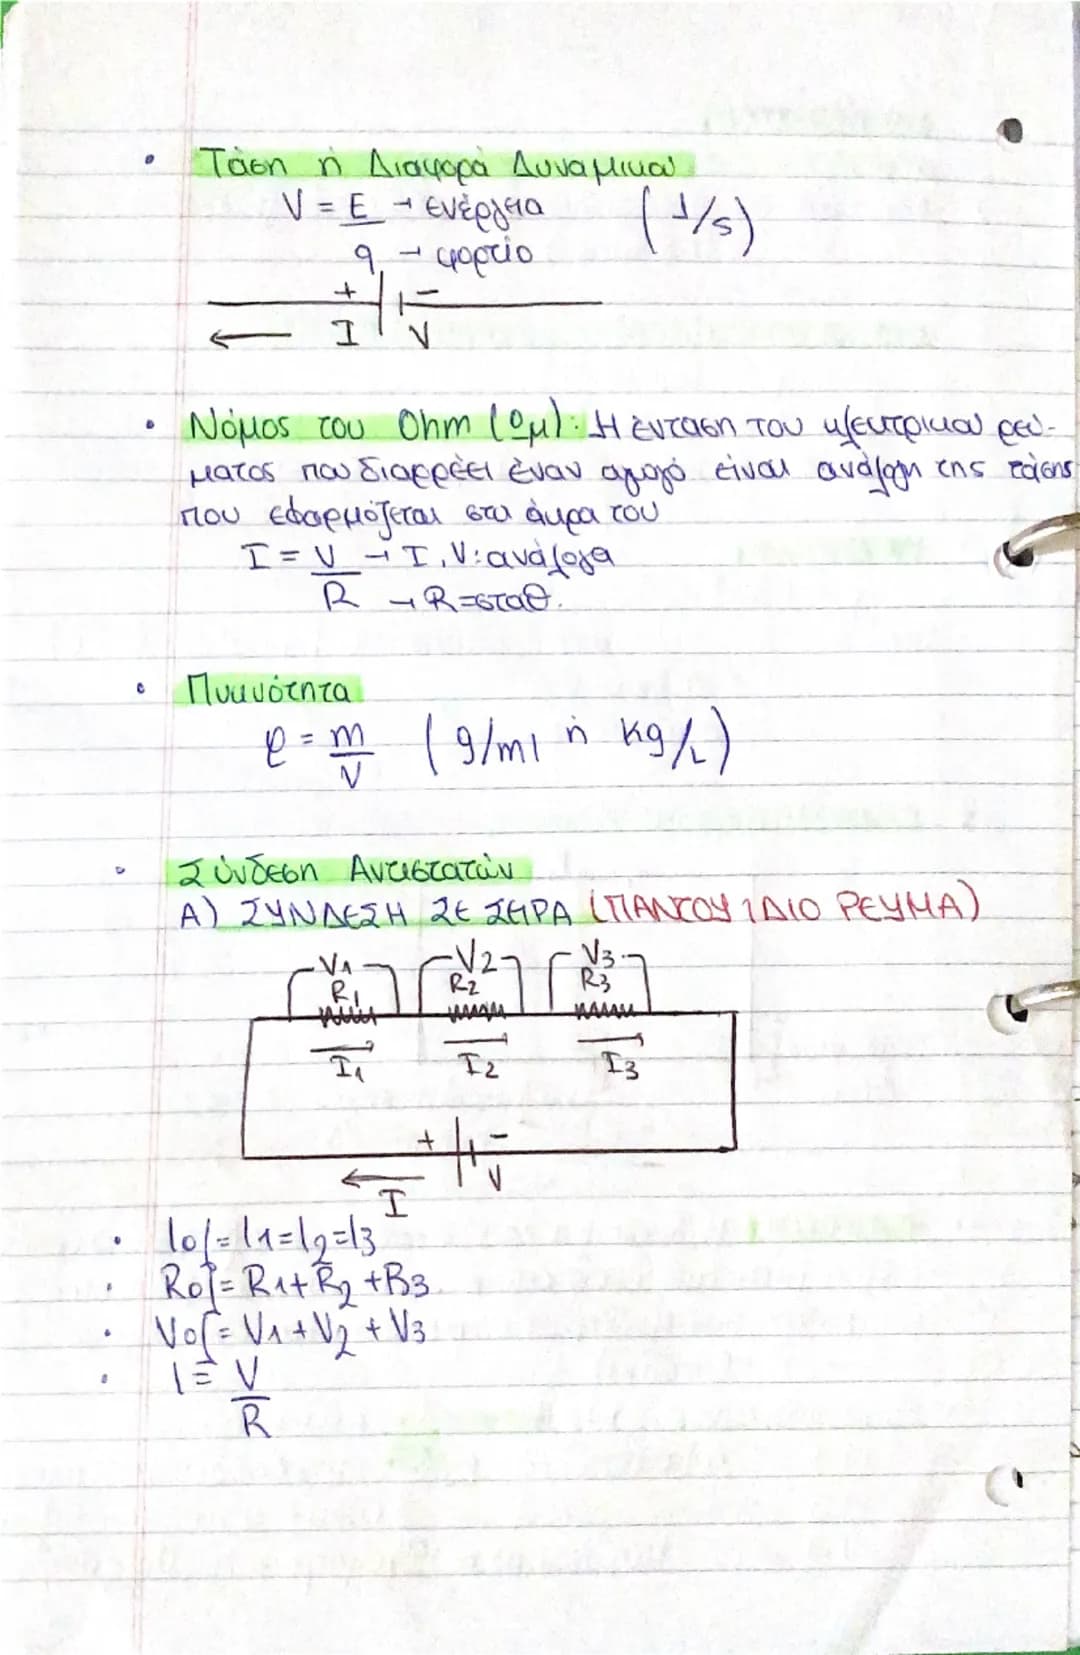 • Τάση ή Διαφορά Δυναμικού
V = E → ενέργεια (J/s)
q → φορτίο
+ -
I V
• Νόμος του Ohm (Ωμ): Η ένταση του ηλεκτρικού ρεύ-
ματος που διαρρέει έναν αγωγό είναι ανάλογη της τάσης
που εφαρμόζεται στα άκρα του
I = V → I, V: ανάλογα
R → R=σταθ.
• Πυκνότητα
ρ = m/V (g/ml ή kg/L)
• Σύνδεση Αντιστατών
Α) ΣΥΝΔΕΣΗ ΣΕ ΣΕΙΡΑ (ΠΑΝΤΟΥ ΙΔΙΟ ΡΕΥΜΑ)
V1 V2 V3
R1 R2 R3
I1 I2 I3
+ -
V
I
• Iολ=I1=I2=I3
• Rολ=R1+R2+R3
• Vολ=V1+V2+V3
• I = V
R